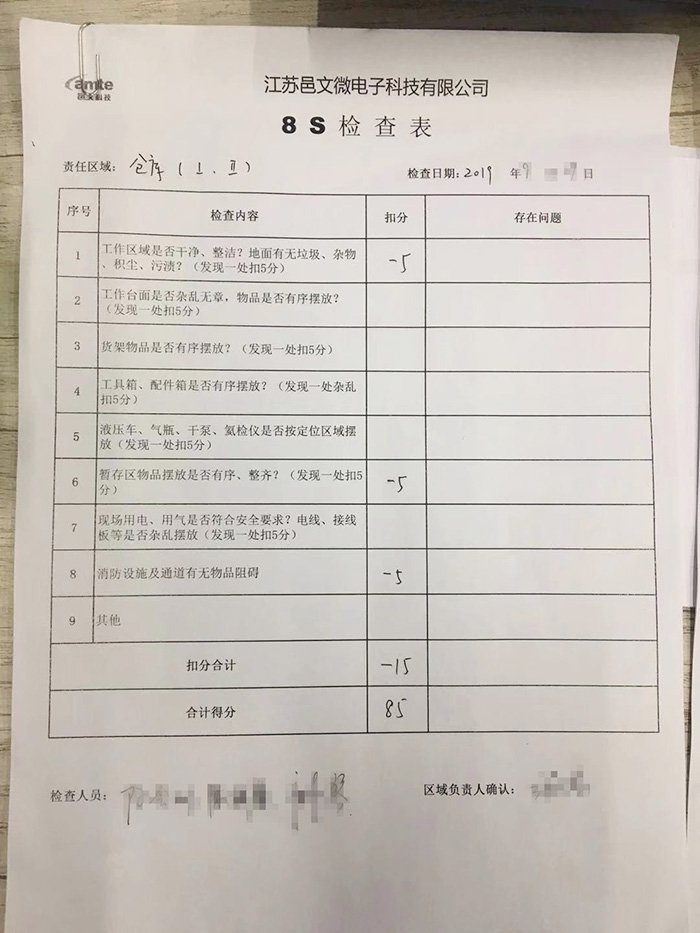 amte
邑文科技
江苏邑文微电子科技有限公司
8S检查表
责任区域：仓库（I、II） 检查日期：2019 年 日
序号 检查内容 扣分 存在问题
1 工作区域是否干净、整洁？地面有无垃圾、杂物 -5
、积尘、污渍？（发现一处扣5分）
2 工作台面是否杂乱无章，物品是否有序摆放？
（发现一处扣5分）
3 货架物品是否有序摆放？（发现一处扣5分）
4 工具箱、配件箱是否有序摆放？（发现一处杂乱
扣5分）
5 液压车、气瓶、干泵、氦检仪是否按定位区域摆
放（发现一处扣5分）
6 暂存区物品摆放是否有序、整齐？（发现一处扣5 -5
分）
7 现场用电、用气是否符合安全要求？电线、接线
板等是否杂乱摆放（发现一处扣5分）
8 消防设施及通道有无物品阻碍 -5
9 其他
扣分合计 -15
合计得分 85
检查人员： 区域负责人确认：